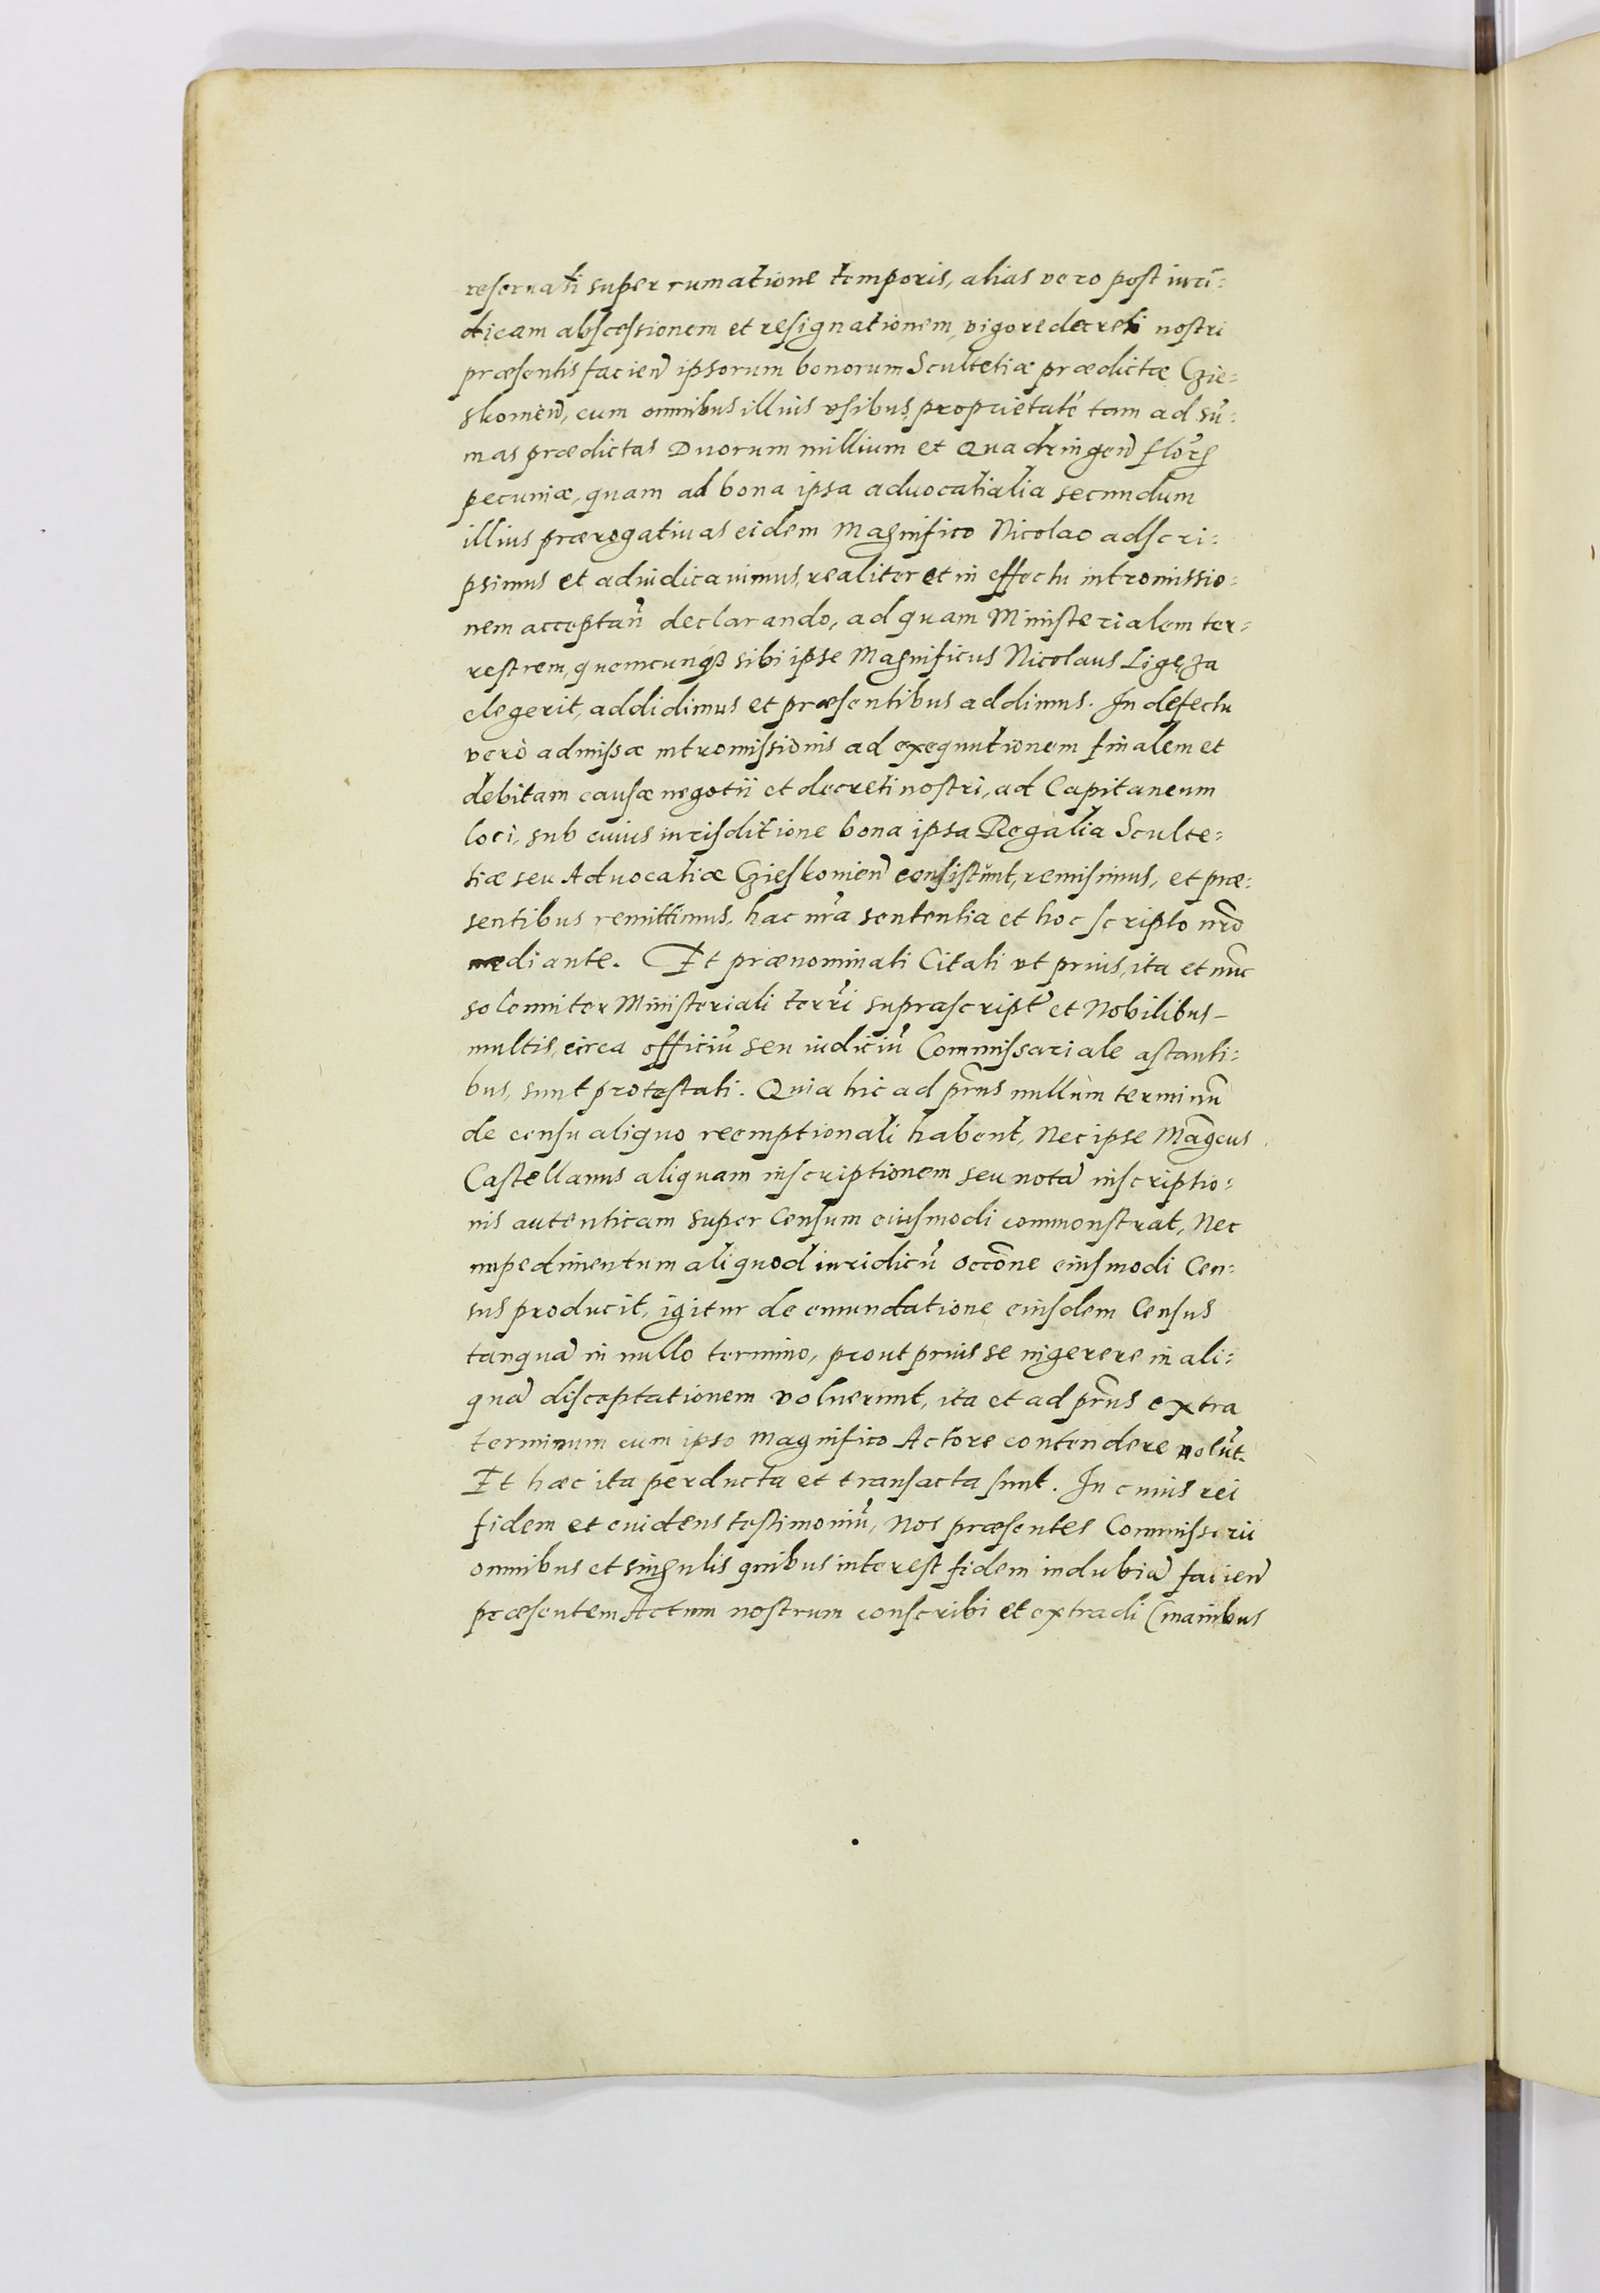 reseruati super rumatione temporis, alias vero post iuri-
dicam abscessionem et resignationem, vigore decreti nostri
præsentis facien̄ ipsorum bonorum Scultetiæ prædictæ Gie-
skomien̄, cum omnibus illius vsibus, proprietate tam ad sū-
mas prædictas Duorum millium et Quadringen̄ flor̄
pecuniæ, quam ad bona ipsa aduocatialia secundum
illius prærogatiuas eidem Magnifico Nicolao adscri-
psimus et adiudicauimus, realiter et in effectu intromissio-
nem acceptan̄ declarando, ad quam Ministerialem ter-
restrem, quemcunqꝫ sibi ipse Magnificus Nicolaus Ligęza
elegerit, addidimus et præsentibus addimus. In defectu
verò admissæ intromissionis ad exequutionem finalem et
debitam causæ negotii et decreti nostri, ad Capitaneum
loci, sub cuius iurisditione bona ipsa Regalia Sculte-
tiæ seu Aduocatiæ Gieskomien̄ consistunt, remisimus, et præ-
sentibus remittimus, hac nr̄a sententia et hoc scripto nr̄o
mediante. Et prænominati Citati vt prius, ita et nūc
solenniter Ministeriali terrī suprascript̄ et Nobilibus
multis, circa officiū seu iudiciū Commissariale astanti-
bus, sunt protestati. Quia hic ad prn̄s nullum terminū
de censu aliquo reemptionali habent, Nec ipse Mag̅cus
Castellanus aliquam inscriptionem seu notā inscriptio-
nis autenticam super Censum eiusmodi commonstrat, Nec
impedimentum aliquod iuridicū occōne eiusmodi Cen-
sus producit, igitur de emundatione eiusdem Census
tanquā in nullo termino, prout prius se ingerere in ali-
quā disceptationem voluerunt, ita et ad prn̄s extra
terminum cum ipso Magnifico Actore contendere nolūt.
Et hæc ita perducta et transacta sunt. In cuius rei
fidem et euidens testimoniū, Nos præsentes Commissarii
omnibus et singulis quibus interest fidem indubiā facien̄
præsentem Actum nostrum conscribi et extradi (manibus